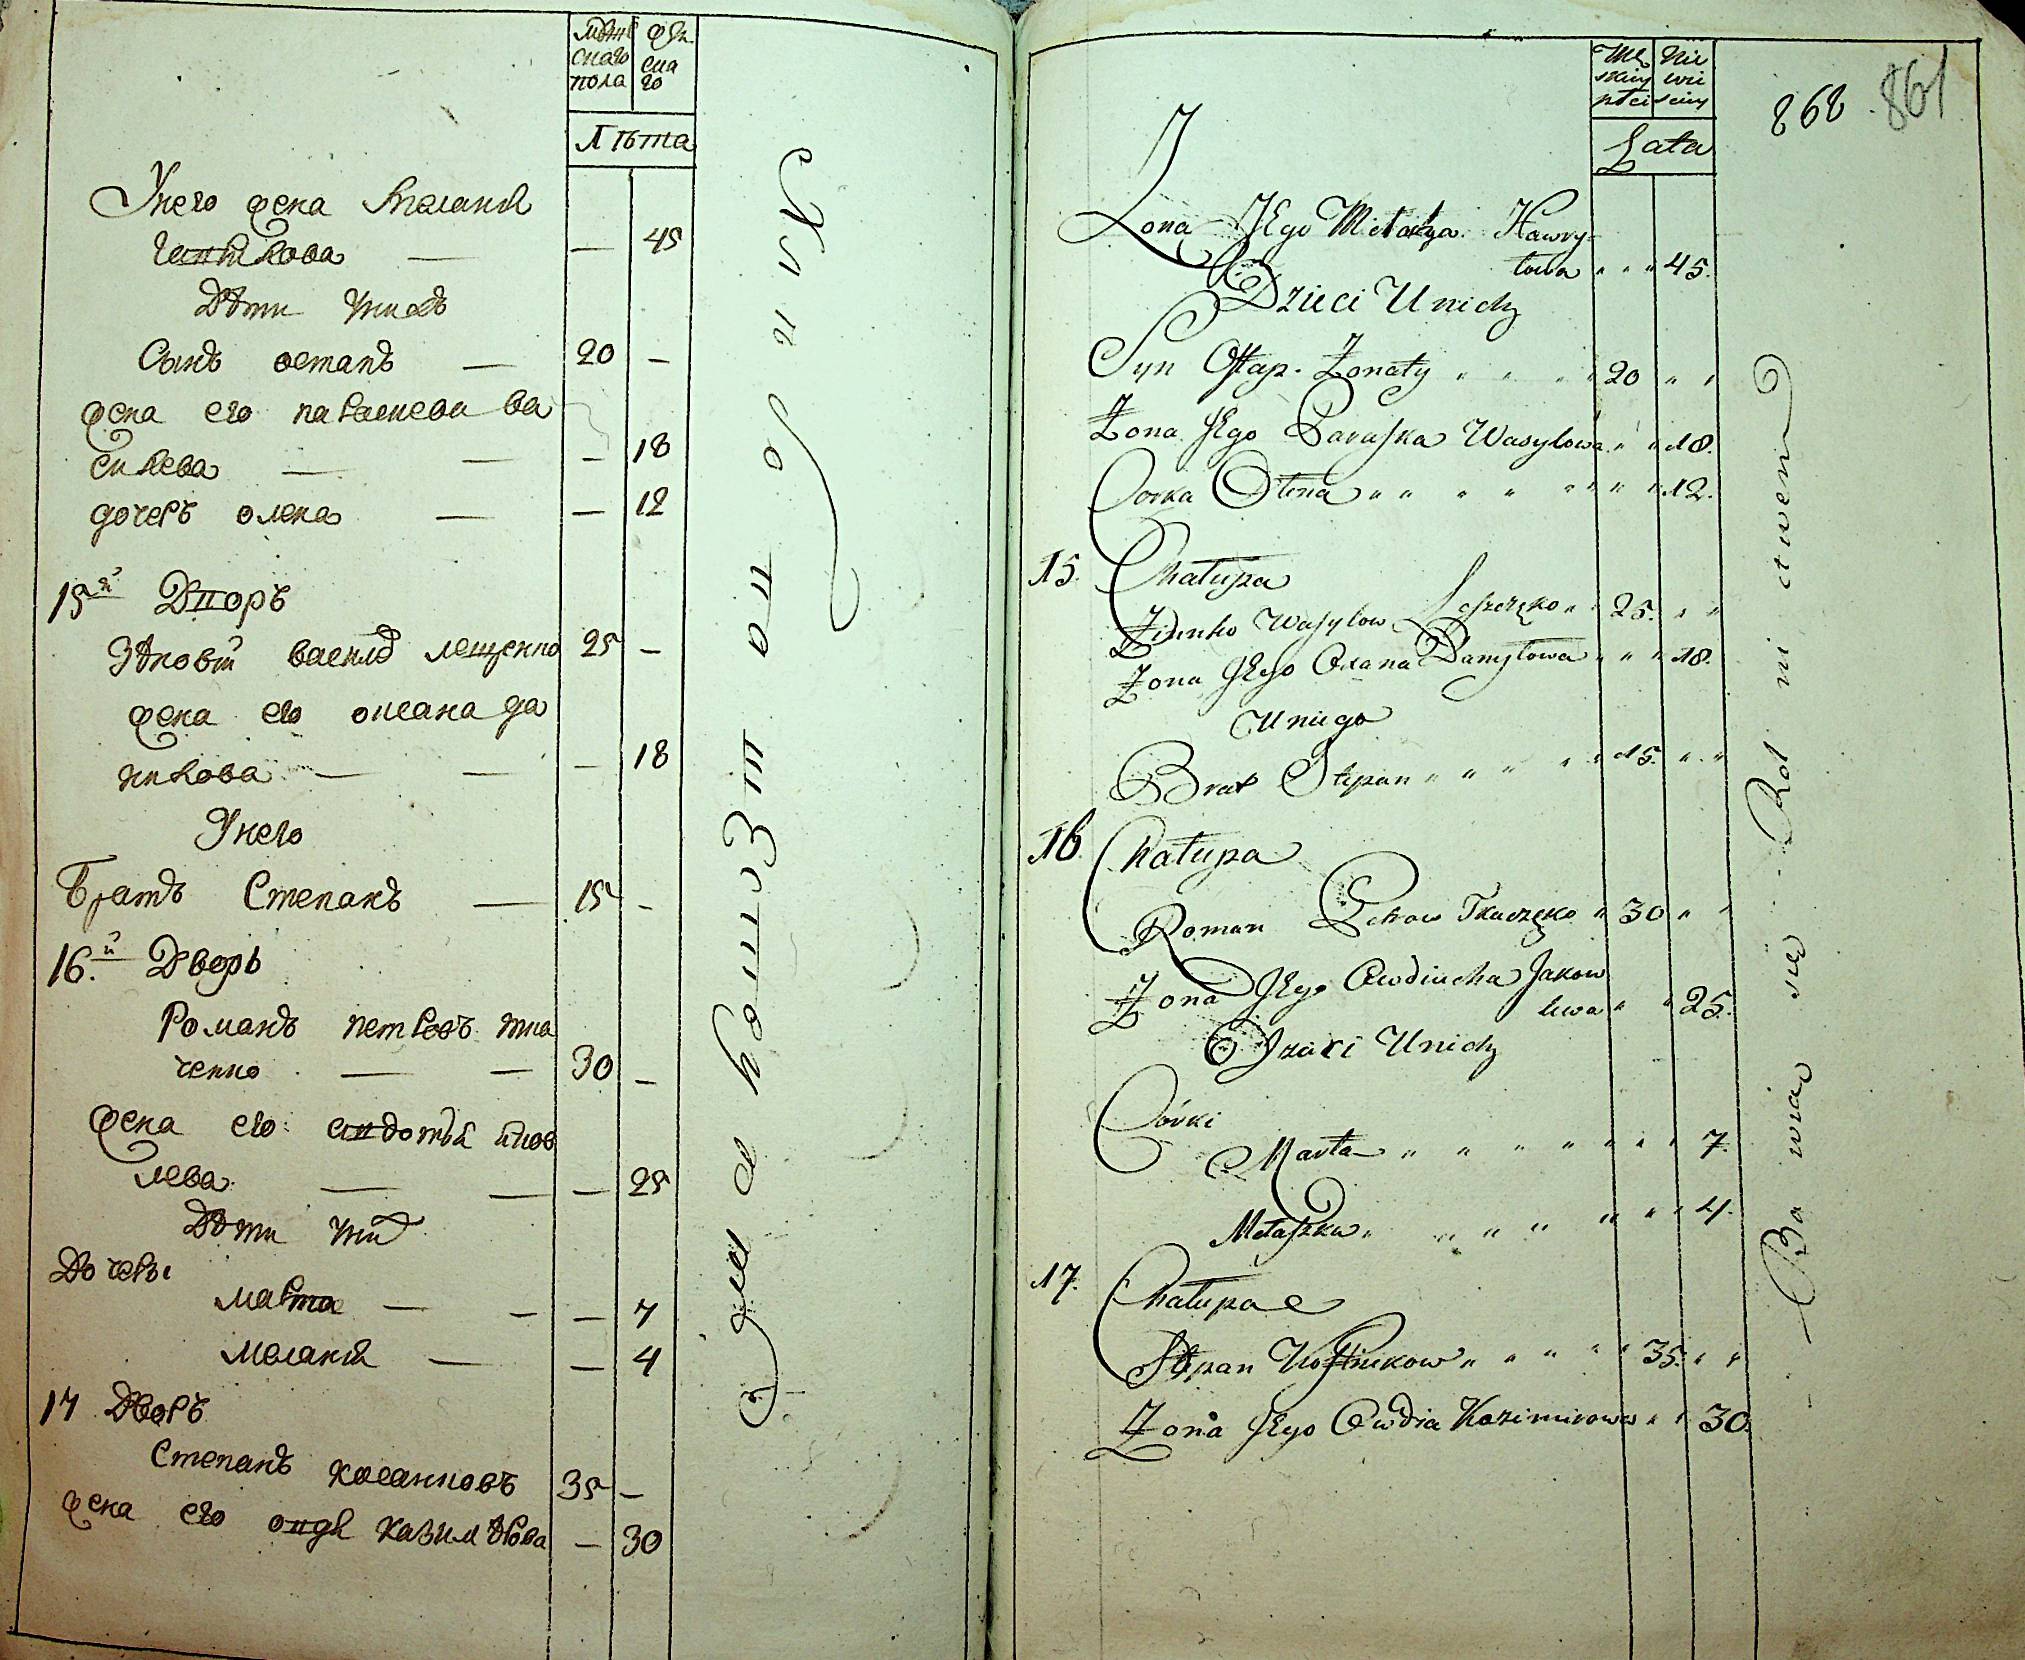 мужескаго пола
женскаго
Лѣта
У него жена Меланія
Гаврилова — — 45
Дѣти у нихъ
Сынъ остапъ — 20 —
жена его параскева ва
силева — — — 18
дочеръ олена — — 12
15й Дворъ
Зѣновій василъ лещенко 25 —
жена его оксана да
нилова — — — 18
У него
Братъ Степанъ — 15 —
16.й Дворъ
Романъ петровъ тка
ченко — — 30 —
жена его евдотья яков
лева — — — 25
Дѣти у нихъ
Дочеры
марта — — — 7
меланія — — 4
17 Дворъ
Степанъ 35 —
жена его овдя казимѣрова — 30
Męskiey płci
Niewieściey
Lata
868. 861
Żona Jego Mełanya Hawry-
łowa " " " 45.
Dzieci U nich
Syn Ostap. Żonaty " " " " 20 " "
Żona Jego Paraska Wasylowa " " 18.
Corka Ołena " " " " " " " " 12.
15. Chałupa
Zienko Wasylow Leszczęko " " 25. " "
Żona Jego Oxana Danyłowa " " " 18.
U niego
Brat Stepan " " " " " 15. " "
16. Chałupa
Roman Petrow Tkaczęko " 30 " "
Żona Jego Owdiucha Jakow
lewa " " 25.
Dzieci U nich
Córki
Marta " " " " " " " 7.
Mełaszka " " " " " " " 4.
17. Chałupa
Stepan " " " " " 35. " "
Żona Jego Owdia Kazimirowa " " 30.
Bawia się Rolnictwem